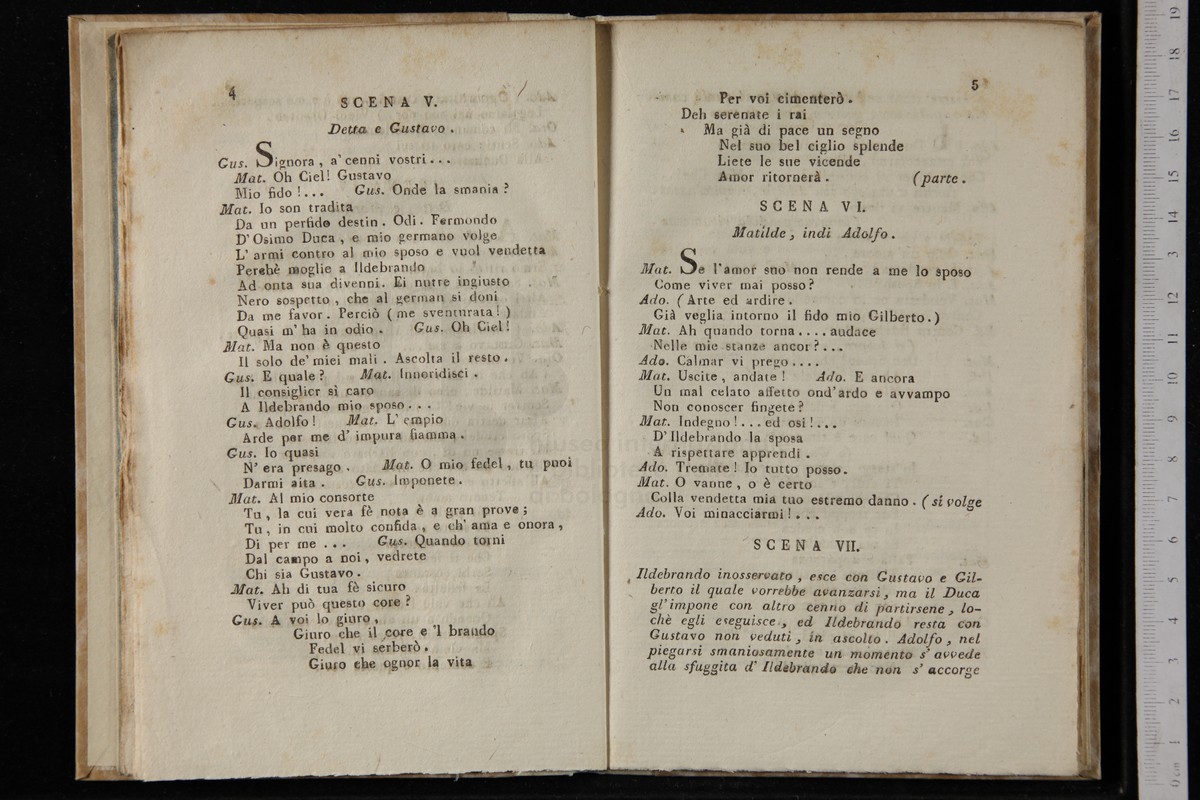 4
SCENA V.
Detta e Gustavo .
Gus. Signora , a' cenni vostri . . .
Mat. Oh Ciel! Gustavo
Mio fido ! . . . Gus. Onde la smania ?
Mat. Io son tradita
Da un perfido destin . Odi . Fermondo
D' Osimo Duca , e mio germano volge
L' armi contro al mio sposo e vuol vendetta
Perchè moglie a Ildebrando
Ad onta sua divenni. Ei nutre ingiusto
Nero sospetto , che al german si doni
Da me favor . Perciò ( me sventurata ! )
Quasi m' ha in odio . Gus. Oh Ciel !
Mat. Ma non è questo
Il solo de' miei mali . Ascolta il resto .
Gus. E quale ? Mat. Inorridisci .
Il consiglier sì caro
A Ildebrando mio sposo . . .
Gus. Adolfo ! Mat. L' empio
Arde per me d' impura fiamma .
Gus. Io quasi
N' era presago . Mat. O mio fedel , tu puoi
Darmi aita . Gus. Imponete .
Mat. Al mio consorte
Tu , la cui vera fè nota è a gran prove ;
Tu , in cui molto confida , e ch' ama e onora ,
Di per me . . . Gus. Quando torni
Dal campo a noi , vedrete
Chi sia Gustavo .
Mat. Ah di tua fè sicuro
Viver può questo core ?
Gus. A voi lo giuro ,
Giuro che il core e 'l brando
Fedel vi serberò .
Giuro che ognor la vita
5
Per voi cimenterò .
Deh serenate i rai
Ma già di pace un segno
Nel suo bel ciglio splende
Liete le sue vicende
Amor ritornerà . (parte .
SCENA VI.
Matilde , indi Adolfo .
Mat. Se l'amor suo non rende a me lo sposo
Come viver mai posso ?
Ado. ( Arte ed ardire .
Già veglia intorno il fido mio Gilberto . )
Mat. Ah quando torna . . . . audace
Nelle mie stanze ancor ? . . .
Ado. Calmar vi prego . . . .
Mat. Uscite , andate ! Ado. E ancora
Un mal celato affetto ond' ardo e avvampo
Non conoscer fingete ?
Mat. Indegno ! . . . ed osi ! . . .
D' Ildebrando la sposa
A rispettare apprendi .
Ado. Tremate ! Io tutto posso.
Mat. O vanne , o è certo
Colla vendetta mia tuo estremo danno . ( si volge
Ado. Voi minacciarmi ! . . .
SCENA VII.
Ildebrando inosservato , esce con Gustavo e Gil-
berto il quale vorrebbe avanzarsi , ma il Duca
gl' impone con altro cenno di partirsene , lo-
chè egli eseguisce , ed Ildebrando resta con
Gustavo non veduti , in ascolto . Adolfo , nel
piegarsi smaniosamente un momento s' avvede
alla sfuggita d' Ildebrando che non s' accorge